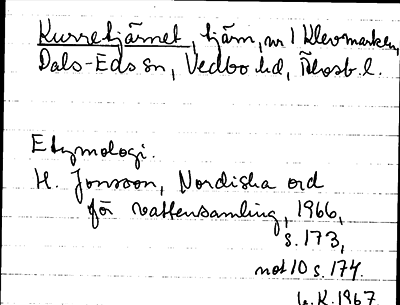 Kurretjärnet, tjärn, nr 1 Klevmarken,
Dals-Eds sn, Vedbo hd, Älvsb. l.
Etymologi.
H. Jonsson, Nordiska ord
för vattensamling, 1966,
s. 173,
not 10 s. 174.
L.K. 1967